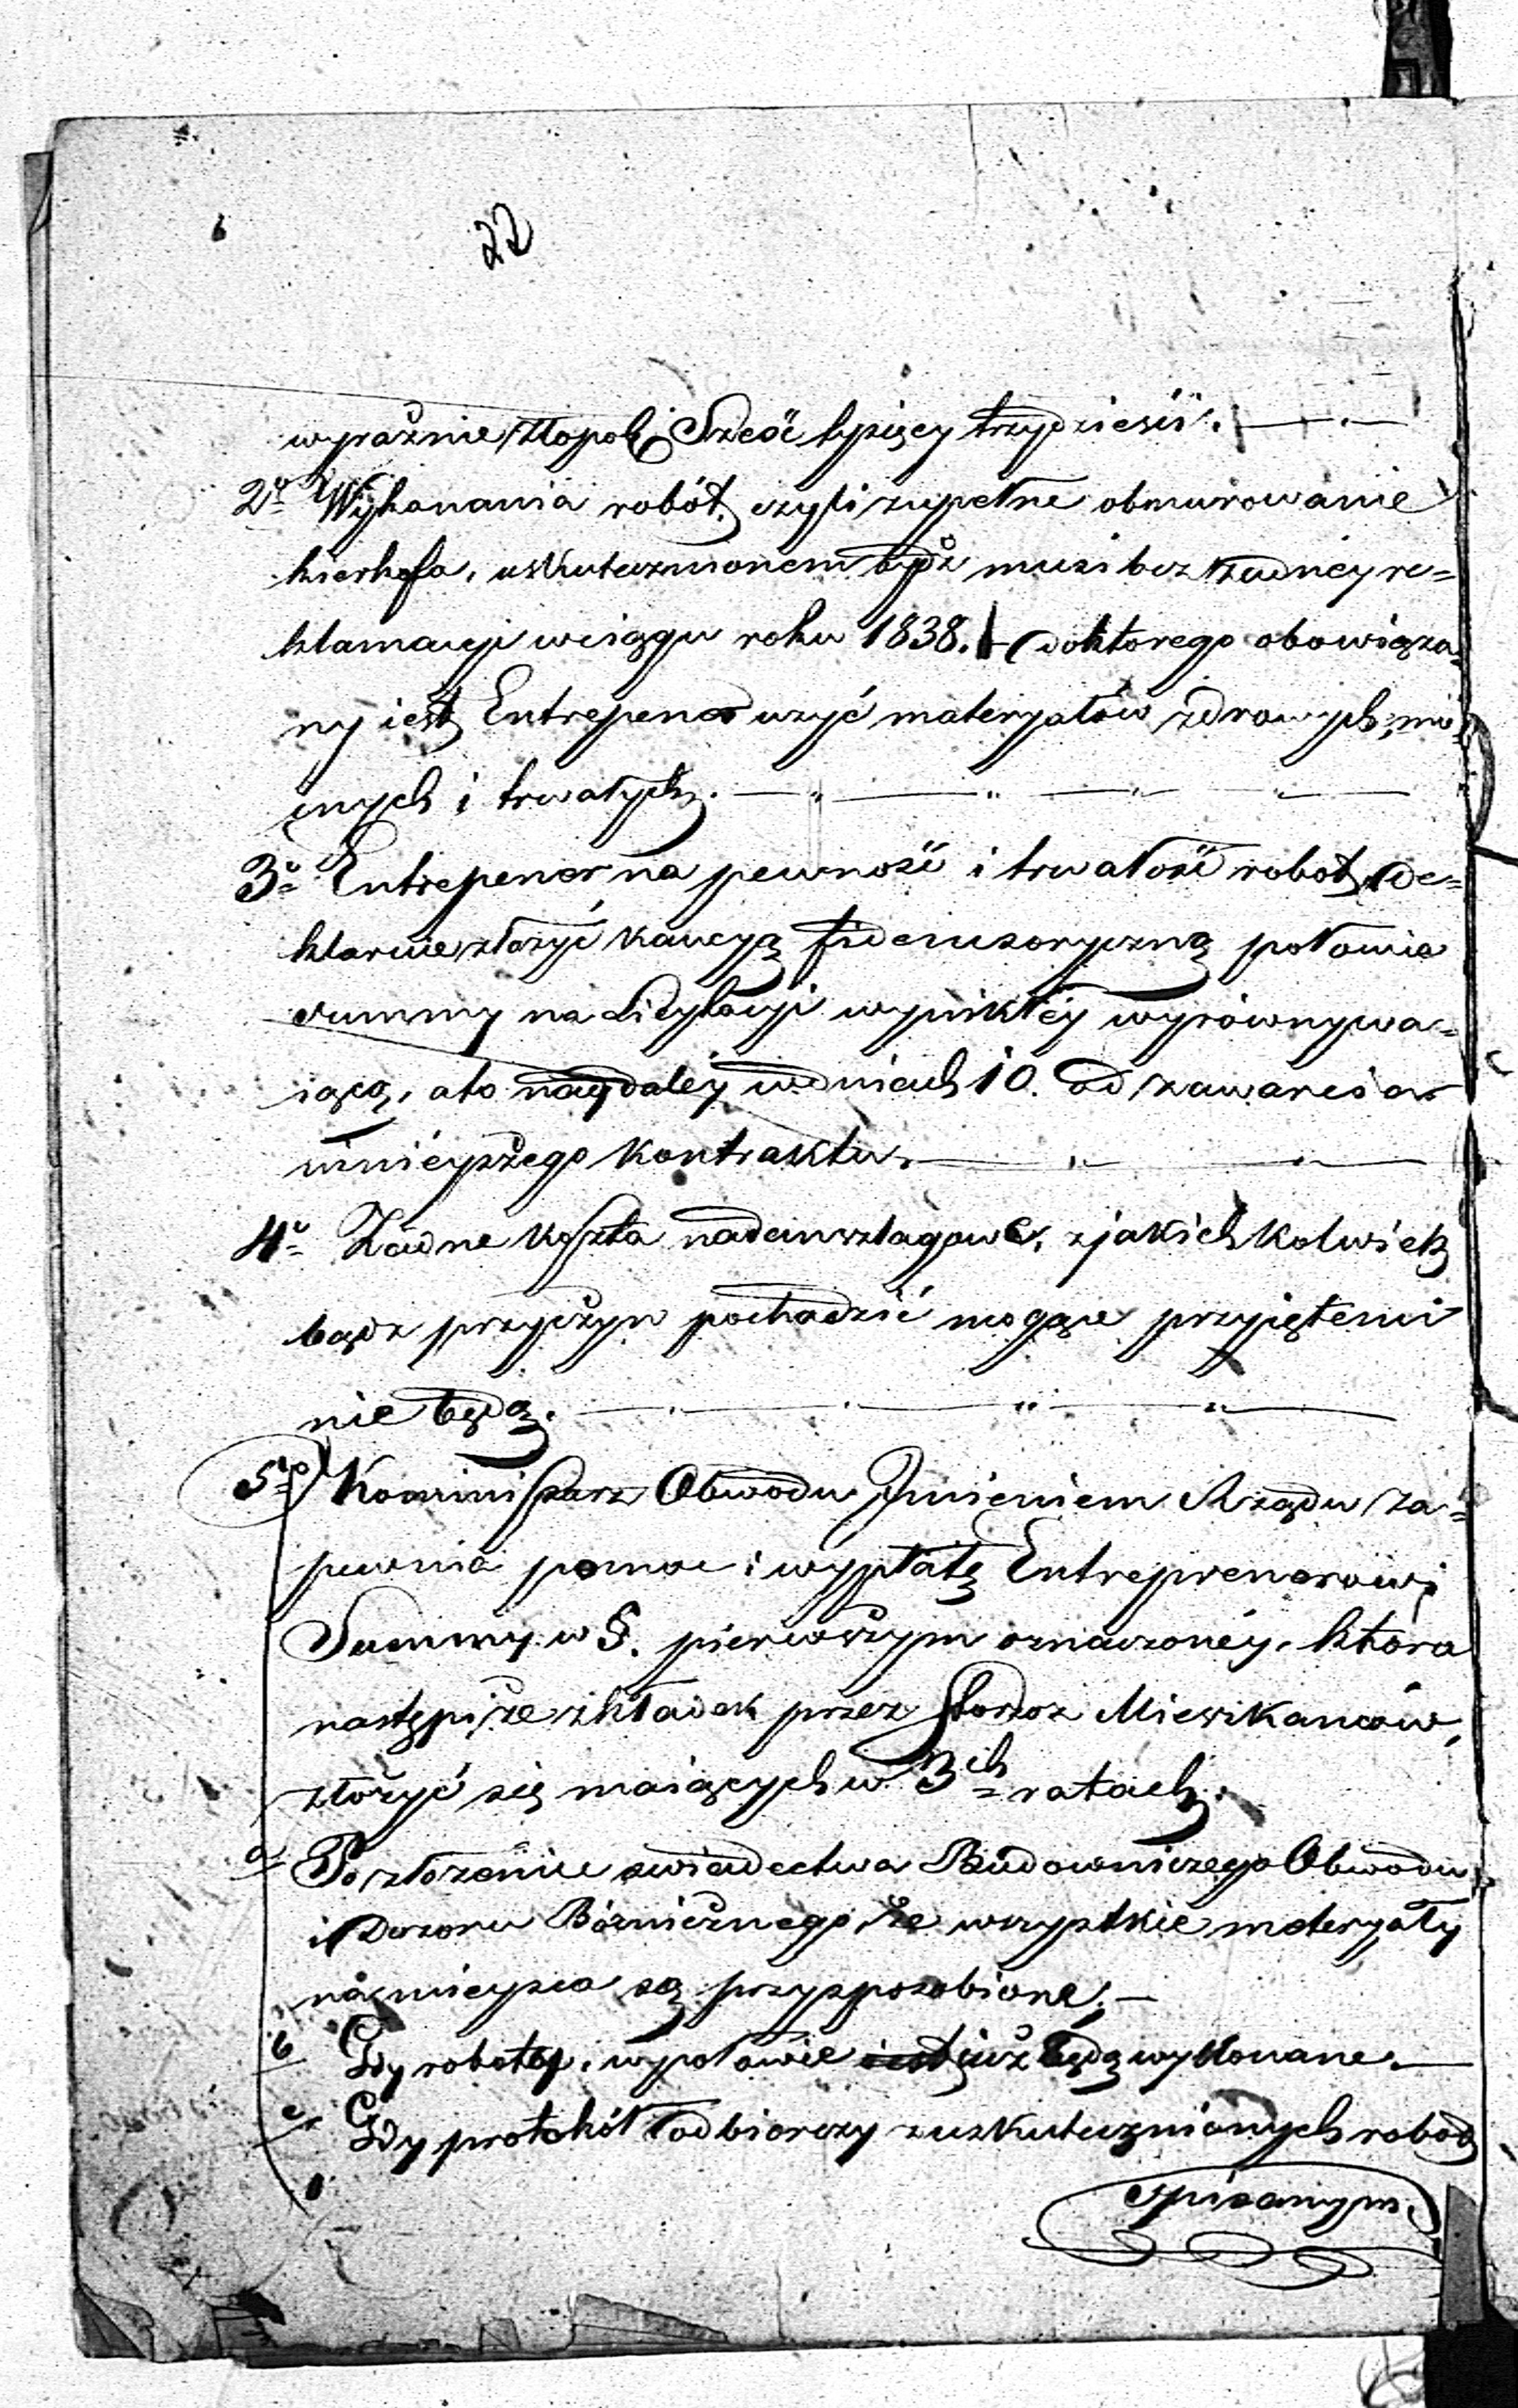 22
wyraźnie Złopol: Sześć tysięcy trzydzieści.
2o Wykonania robót, czyli zupełne obmurowanie
kierhofa, uskutecznionem bydź musi bez żadnéy re=
klamacyi wciągu roku 1838. doktorego obowiąza=
ny iest Entrepenor użyć materyałów zdrowych, mo=
cnych i trwałych.
3o Entrepenor na pewność i trwałość robot, de=
klaruie złożyć kaucyą fideiusoryczną połowie
summy na Licytacyi wynikłéy wyrównywa=
iącą, ato naydaléy wdniach 10. od zawarcia
ninieyszego kontraktu.
4o Żadne koszta nadanszlagowe, zjakichkolwiek
bądz przyczyn pochodzić mogące przyiętemi
nie będą.
5o Kommissarz Obwodu Imieniem Rządu za=
pewnia pomoc i wypłatę Entreprenerowi
Summy w §. pierwszym oznaczonéy, która
nastąpi ze składek przez Starzoz. Mieszkańców,
złożyć się maiących w 3ch ratach.
a/ Po złożeniu swiadectwa Budowniczego Obwodu
i Dozoru Bózniczego, że wszystkie materyały
na mieysca są przysposobione.
b/ Gdy roboty, wpołowie iuż będą wykonane.
c/ Gdy protokół odbiorczy zuskutecznionych robot
spisanym.